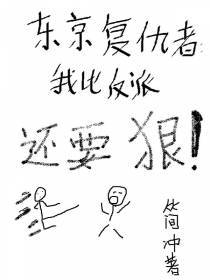 东京复仇者
我比反派
还要狠！
竺间冲著